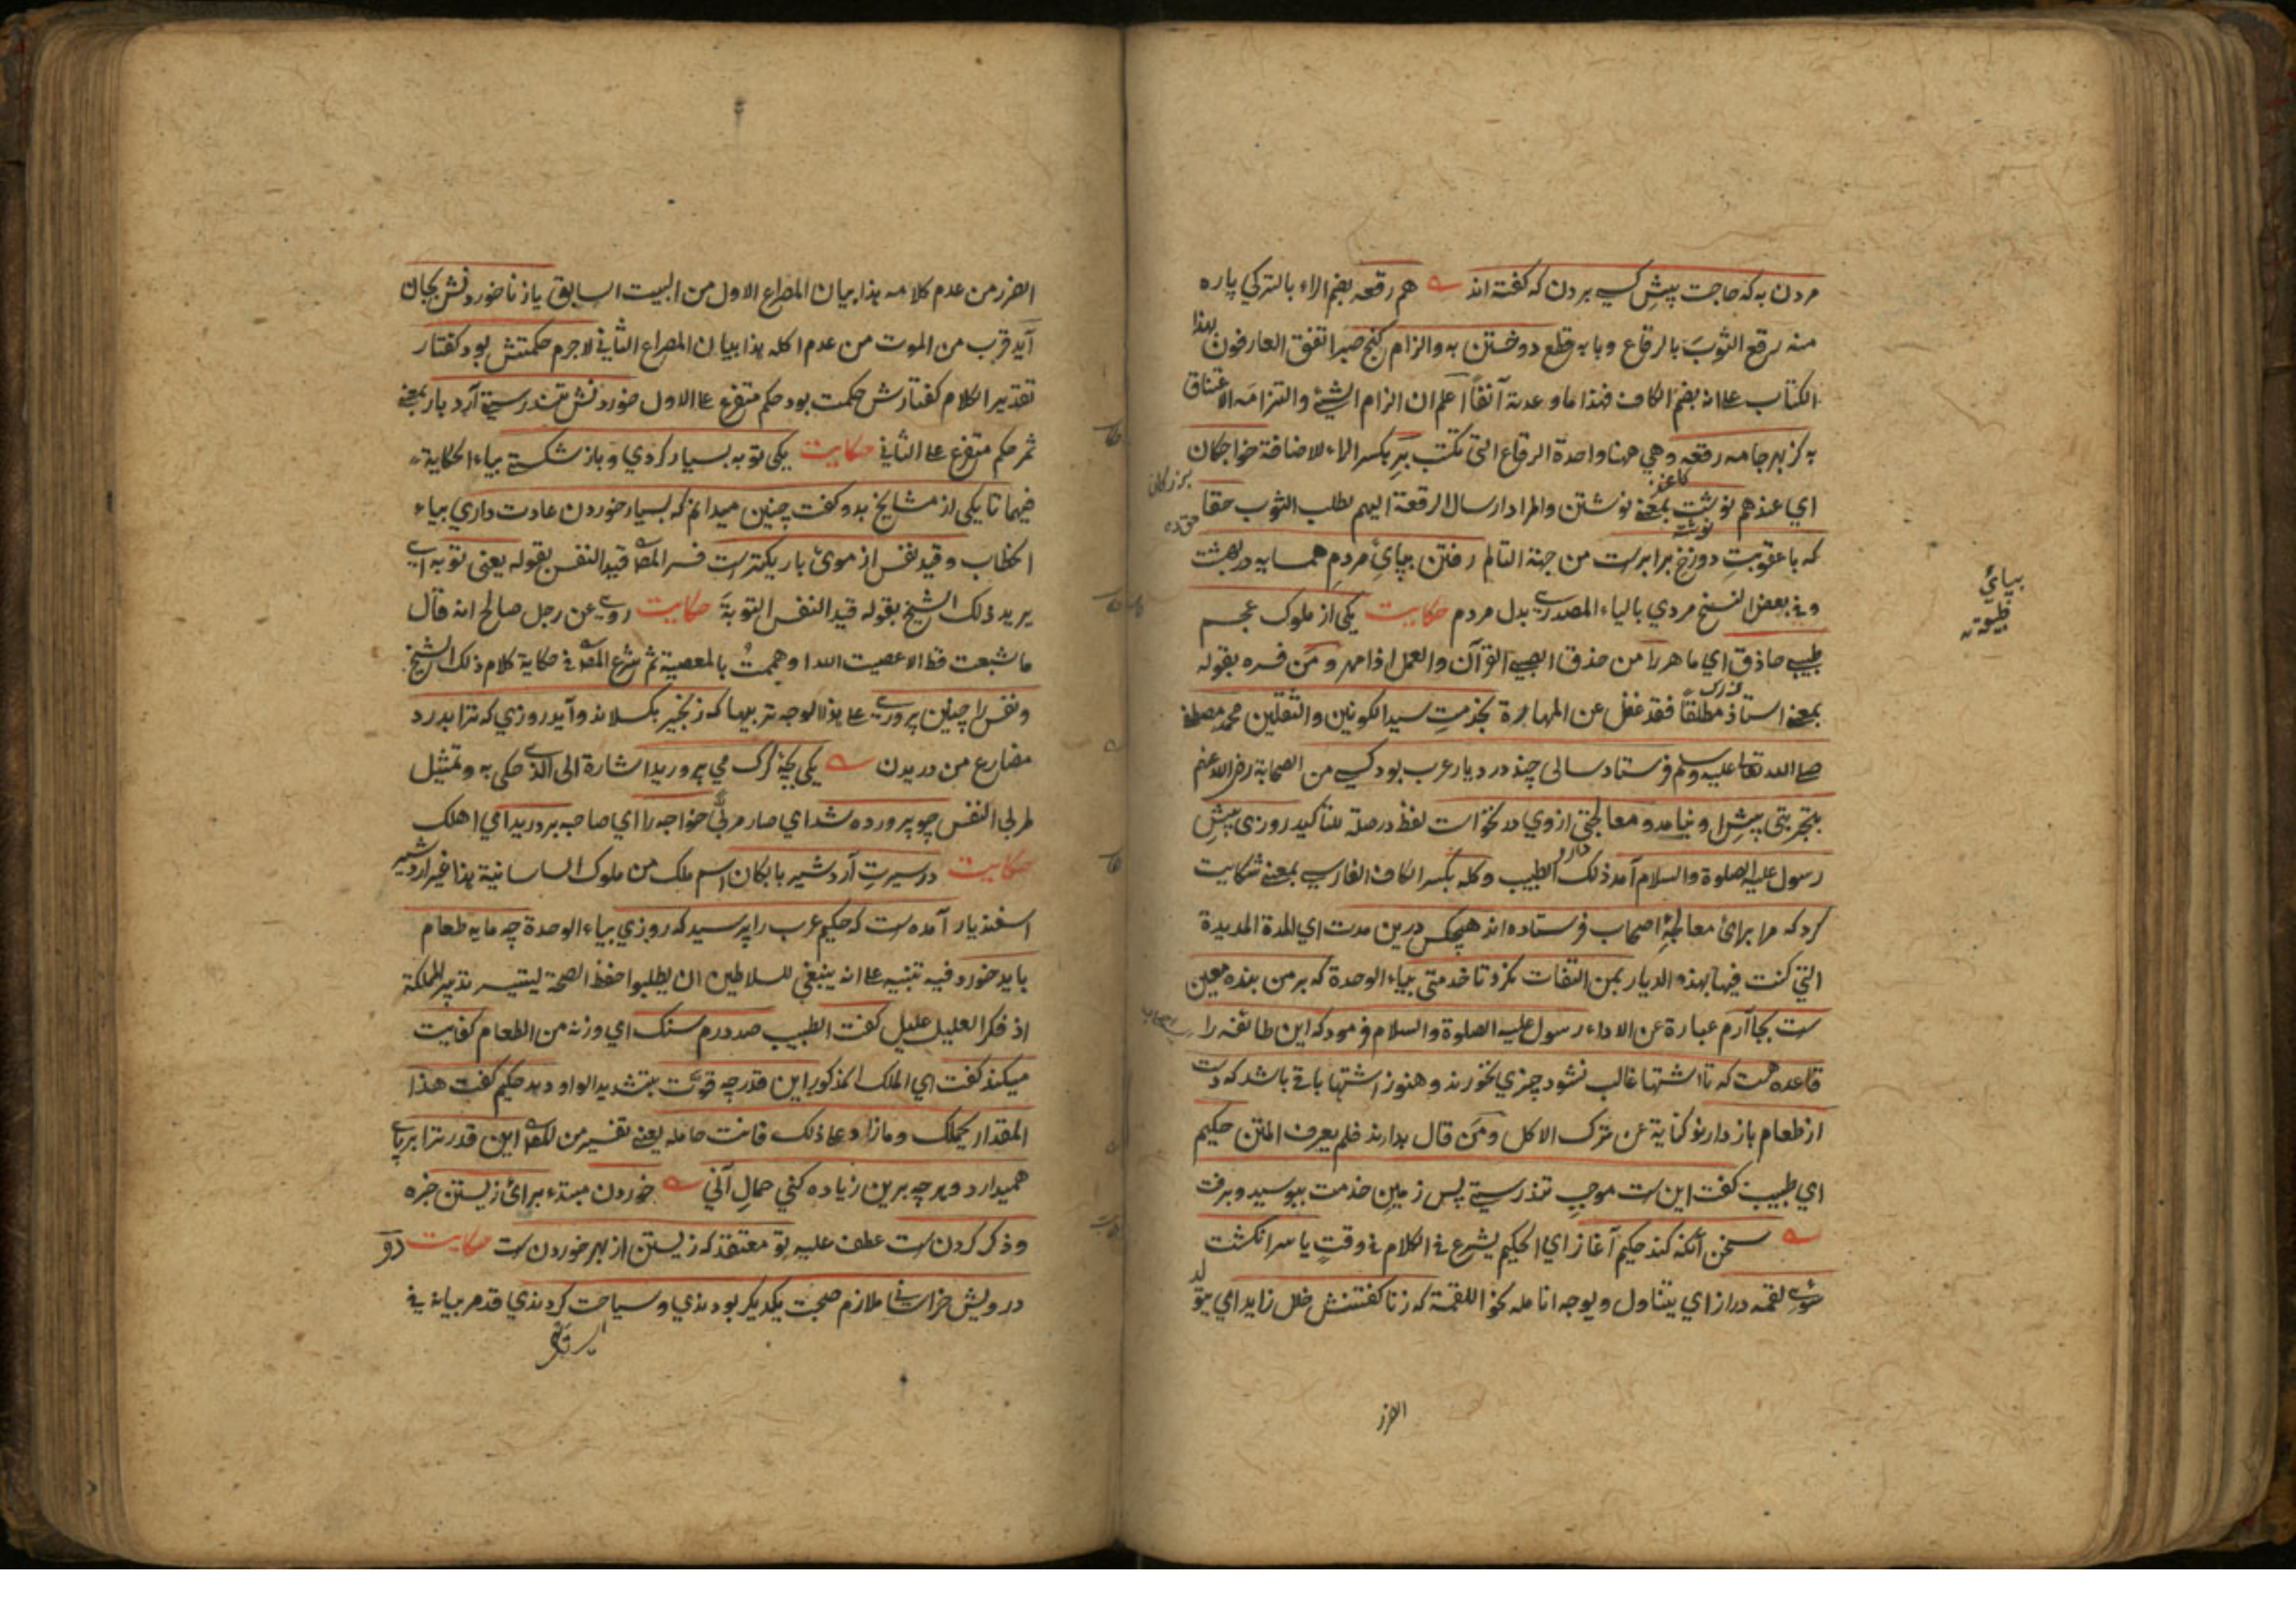 مردن به که حاجت پیش کسی بردن که گفته اند هم رقعه بضم الراء بالترکی پاره
منه رقع الثوبَ بالرقاع وبابه قطع دوختن به والزام کنج صبر اتفق العارفون بهذا
الکتاب علی انه بضم الکاف فهذا ما وعدته آنفاً اعلم ان الزام الشیٔ والتزامه الاعتناق
به کز بهر جامه رقعه وهي ههنا واحدة الرقاع التی تکتب بَرِ بکسر الراء للاضافة خواجکان
بزرکان
اي عندهم نوشت بمعنی نوشتن والمراد ارسال الرقعة الیهم لطلب الثوب حقا
کاغد
نوشته
که با عقوبتِ دوزخ برابرست من جهة التألم رفتن بپايِ مردمِ همسایه در بهشت
بپايِ
وفی بعض النسخ مردي بالیاء المصدری بدل مردم حکایت یکی از ملوک عجم
طبیبِ حاذق اي ماهر را من حذق الصبی القرآن والعمل اذا مهر ومن فسره بقوله
بمعنی استاذ مطلقاً فقد غفل عن المهاجرة بخدمتِ سید الکونین والثقلین محمد مصطفی
صلی الله تعالی علیه وسلم فرستاد سالی چند در دیار عرب بود کسی من الصحابة رضی الله عنهم
بتجربتی پیشِ او نیامد و معالجتی ازوي در نخواست لفظ در صلة للتأکید روزی پیشِ
رسول علیه الصلوة والسلام آمد ذلک الطبیب وکله بکسر الکاف الفارسی بمعنی شکایت
کرد که مرا براىٔ معالجهٔ اصحاب فرستاده اند هیچکس درین مدت اي المدة المدیدة
التي کنت فیها بهذه الدیار بمن التفات نکرد تا خدمتی بیاء الوحدة که بر من بنده معین
ست بجا آرم عبارة عن الاداء رسول علیه الصلوة والسلام فرمود که این طائفه را
قاعده هست که تا اشتها غالب نشود چیزي نخورند وهنوز اشتها باقی باشد که دست
از طعام باز دارند کنایة عن ترک الاکل ومن قال بدارند فلم یعرف المتن حکیم
اي طبیب کفت این ست موجبِ تندرستی پس زمینِ خدمت ببوسید و برفت
سخن آنکه کند حکیم آغاز اي الحکیم یشرع فی الکلام فی وقتٍ یا سر انکشت
سویِ لقمه دراز اي یتناول ویوجه انامله نحو اللقمة که زنا کفتنش خلل زاید اي یتولد
الضرر
الضرر من عدم کلامه هذا بیان المصراع الاول من البیت السابق یا ز ناخوردنش بجان
آید قرب من الموت من عدم اکله هذا بیان المصراع الثاني لاجرم حکمتش بود کفتار
تقدیر الکلام کفتارش حکمت بود حکم متفرع علی الاول خوردنش تندرستی آرد بار بمعنی
ثمر حکم متفرع علی الثاني حکایت یکی توبه بسیار کردي و باز شکستی بیاء الحکایة
فیهما تا یکی از مشایخ بدو کفت چنین میدانم که بسیار خوردن عادت داري بیاء
الخطاب وقیدِ نفس از موی باریکترست فسر المص قید النفس بقوله یعنی توبه ای
یرید ذلک الشیخ بقوله قید النفس التوبةَ حکایت روی عن رجل صالح انه قال
ما شبعت قط الا عصیت الله او هممتُ بالمعصیة ثم شرع المص فی حکایة کلام ذلک الشیخ
ونفس را چنین پروری علی هذا الوجه تربیها که زنجیر بکسلاند و آید روزي که ترا بدرد
مضارع من دریدن یکی بچهٔ کرک مي پرورید اشارة الی الذی حکی به وتمثیل
لمربی النفس چو پرورده شد اي صار مربیً خواجه را اي صاحبه بردرید اي اهلک
حکایت در سیرتِ آردشیر بابکان اسم ملک من ملوک الساسانیة هذا غیر اردشیر
اسفندیار آمده ست که حکیمِ عرب را پرسید که روزي بیاء الوحدة چه مایه طعام
باید خورد فیه تنبیه علی انه ینبغي للسلاطین ان یطلبوا حفظ الصحة لیتیسر تدبیر المملکة
اذ فکر العلیل علیل کفت الطبیب صد درم سنک اي وزنه من الطعام کفایت
میکند کفت اي الملک المذکور این قدر چه قوّت بتشدید الواو دهد حکیم کفت هذا
المقدار یحملک وما زاد علی ذلک فانت حامله یعنی تفسیر من المص این قدر ترا بر پای
همیدارد و هر چه برین زیاده کني حمالِ آني خوردن مبتدأ براىٔ زیستن خبره
وذکر کردن ست عطف علیه تو معتقد که زیستن از بهر خوردن ست حکایت دو
درویش خراسانی ملازم صحبت یکدیکر بودندي و سیاحت کردندي قد مر بیانه فی